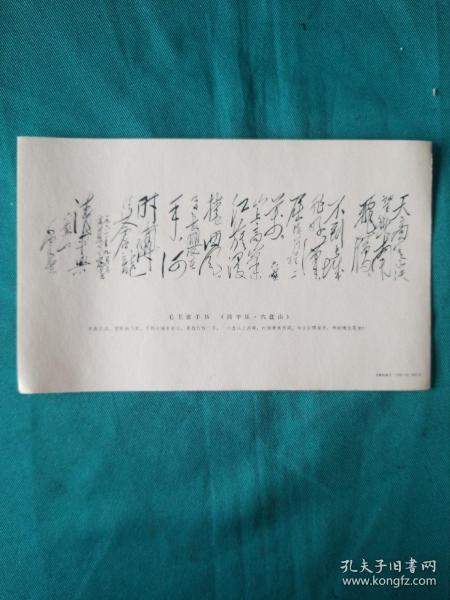 天高云淡
望断南飞
雁
不到长城
非好汉
屈指行程二
万
六盘
山上高峰
红旗漫
卷西风
今日长缨在
手何
时缚
住苍龙
清平乐
六盘山
毛泽东
毛主席手书 《清平乐·六盘山》
天高云淡,望断南飞雁。不到长城非好汉,屈指行程二万。 六盘山上高峰,红旗漫卷西风。今日长缨在手,何时缚住苍龙?
孔夫子旧书网
www.kongfz.com